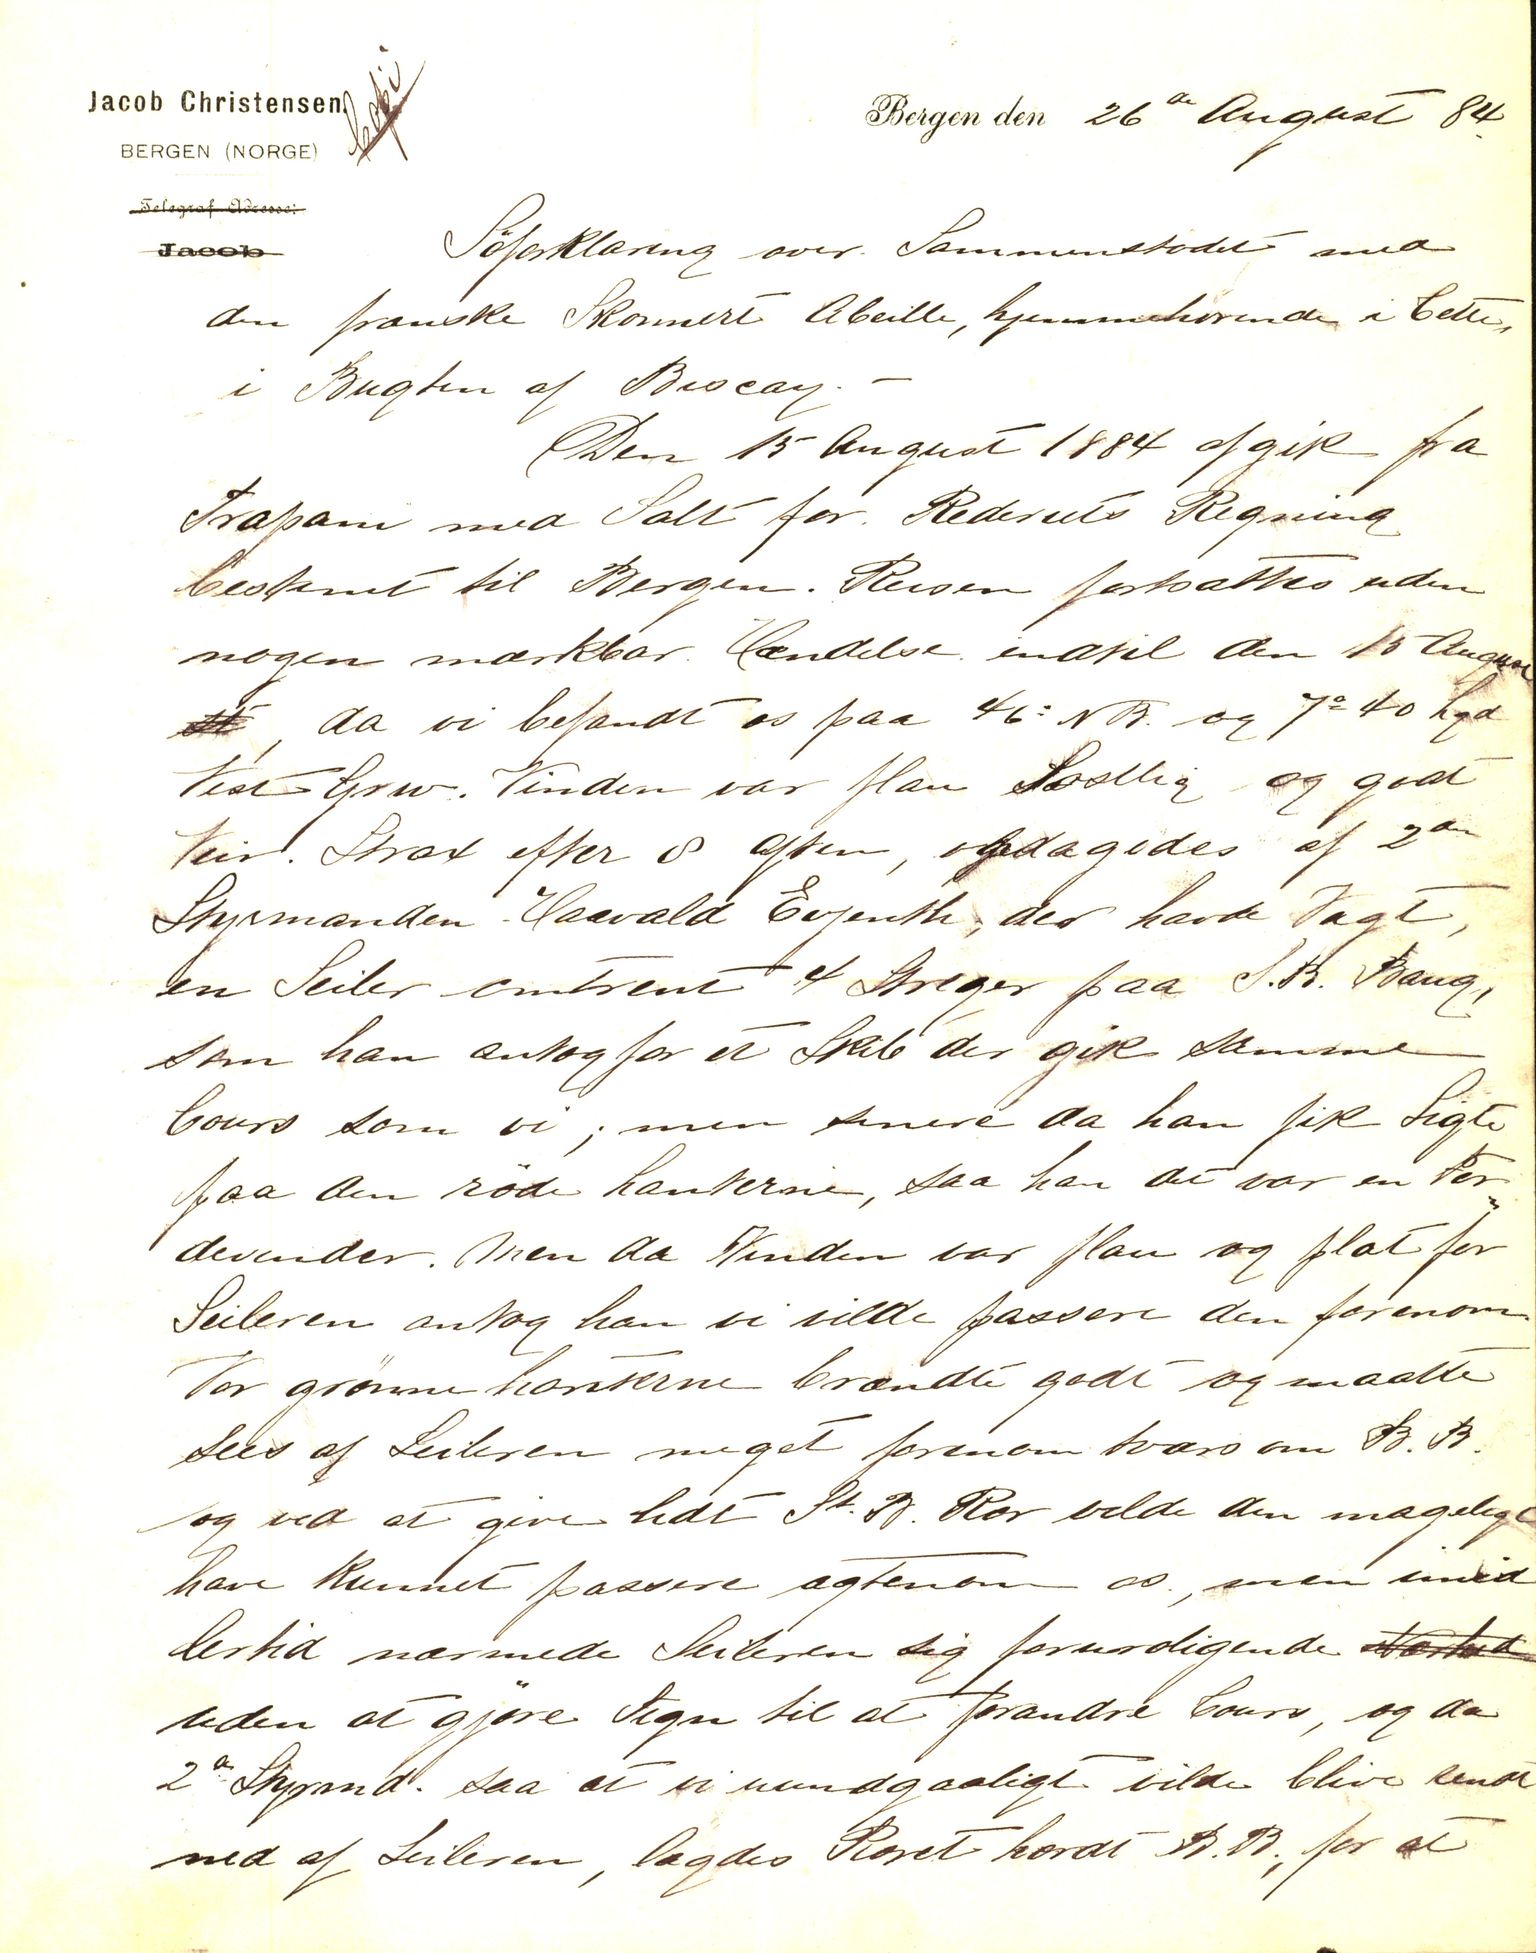 Jacob Christensen.
BERGEN (NORGE)
Copi
Telegraf Adresse:
Jacob
Bergen den 26de August 84.
Söforklaring over Sammenstödet med
den franske Skonnert Abeille, hjemmehörende i Cette,
i Bugten af Biscay. —
Den 15 August 1884 afgik fra
Trapani med Salt for Rederiets Regning
bestemt til Bergen. Reisen fortsattes uden
nogen mærkbar Hændelse indtil den 15 August
, da vi befandt os paa 46° NB. og 7° 40 Lgd
Vest Grw. Vinden var flau Sostlig og godt
Veir. Strax efter 8 Aften, opdagedes af 2den
Styrmanden Haavald Evjenth, der havde Vagt,
en Seiler omtrent 4 Streger paa S.B. Baug,
som han antog for et Skib der gik samme
Cours som vi; men senere da han fik Sigte
paa den röde Lanterne, saa han det var en For„
devinder. Men da Vinden var flau og flat for
Seileren antog han vi vilde passere den forenom.
Vor grönne Lanterne brændte godt og maatte
sees af Seileren meget forenom tværs om B.B.
og ved at give lidt St.B. Ror vilde den mageligt
have kunnet passere agtenom os, men imid
lertid nærmede Seileren sig foruroligende
uden at gjöre Tegn til at forandre Cours, og da
2den Styrmd. saa at vi uundgaaligt vilde blive rendt
ned af Seileren, lagdes Roret hardt B.B., for at